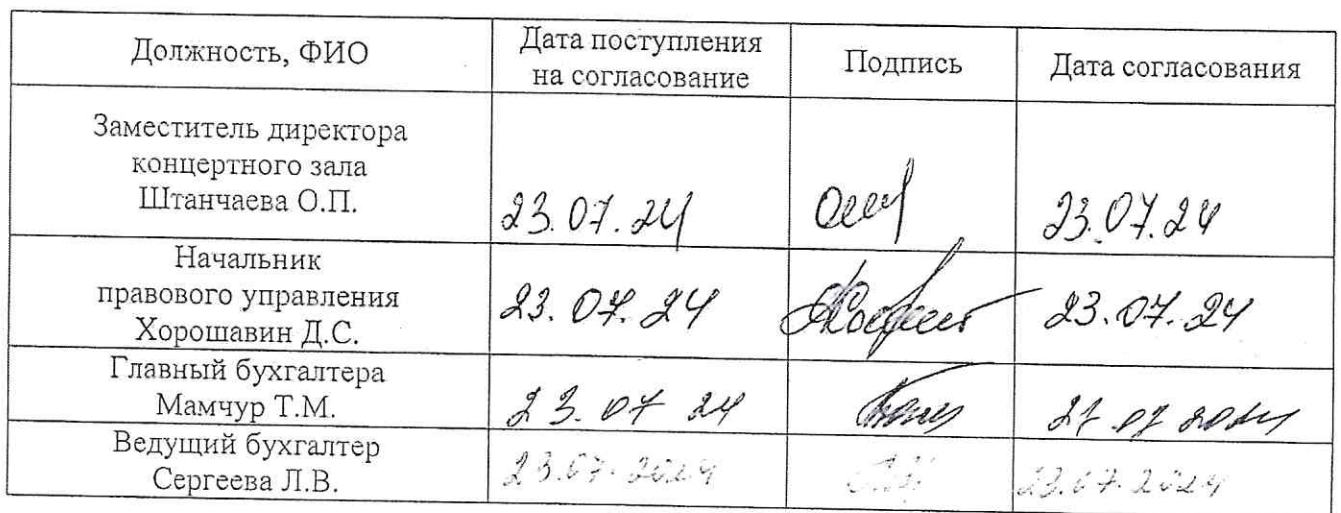 Должность, ФИО
Дата поступления
на согласование
Подпись
Дата согласования
Заместитель директора
концертного зала
Штанчаева О.П.
23.07.24
23.07.24
Начальник
правового управления
Хорошавин Д.С.
23.07.24
23.07.24
Главный бухгалтера
Мамчур Т.М.
23.07 24
Ведущий бухгалтер
Сергеева Л.В.
23.07.2024
23.07.2024